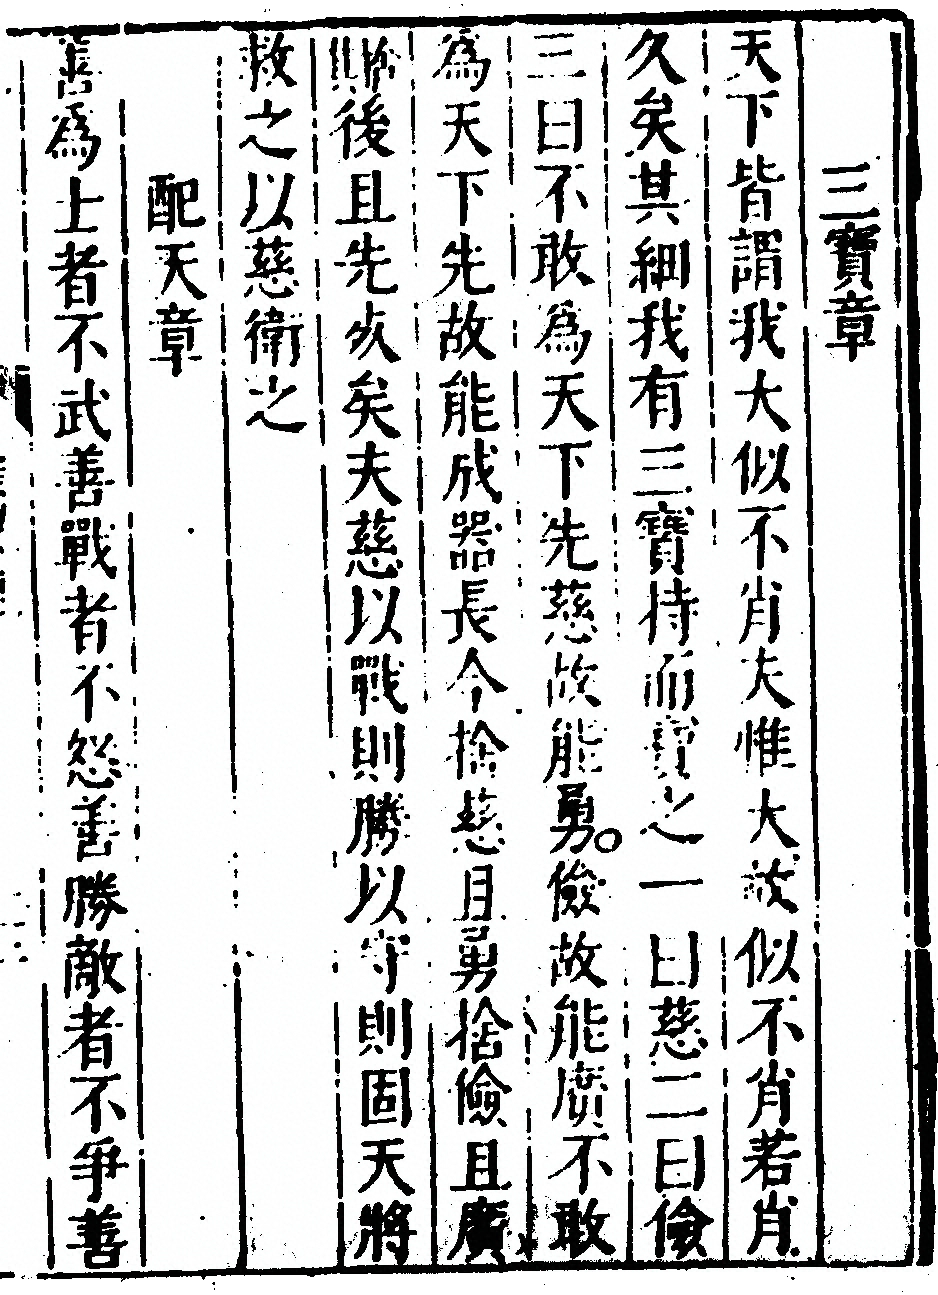 三寶章
天下皆謂我大似不肖夫惟大故似不肖若肖
久矣其細我有三寶持而寶之一曰慈二曰儉
三曰不敢爲天下先慈故能勇儉故能廣不敢
為天下先故能成器長今捨慈且勇捨儉且廣
捨後且先死矣夫慈以戰則勝以守則固天將
救之以慈衛之
配天章
善爲上者不武善戰者不怒善勝敵者不爭善